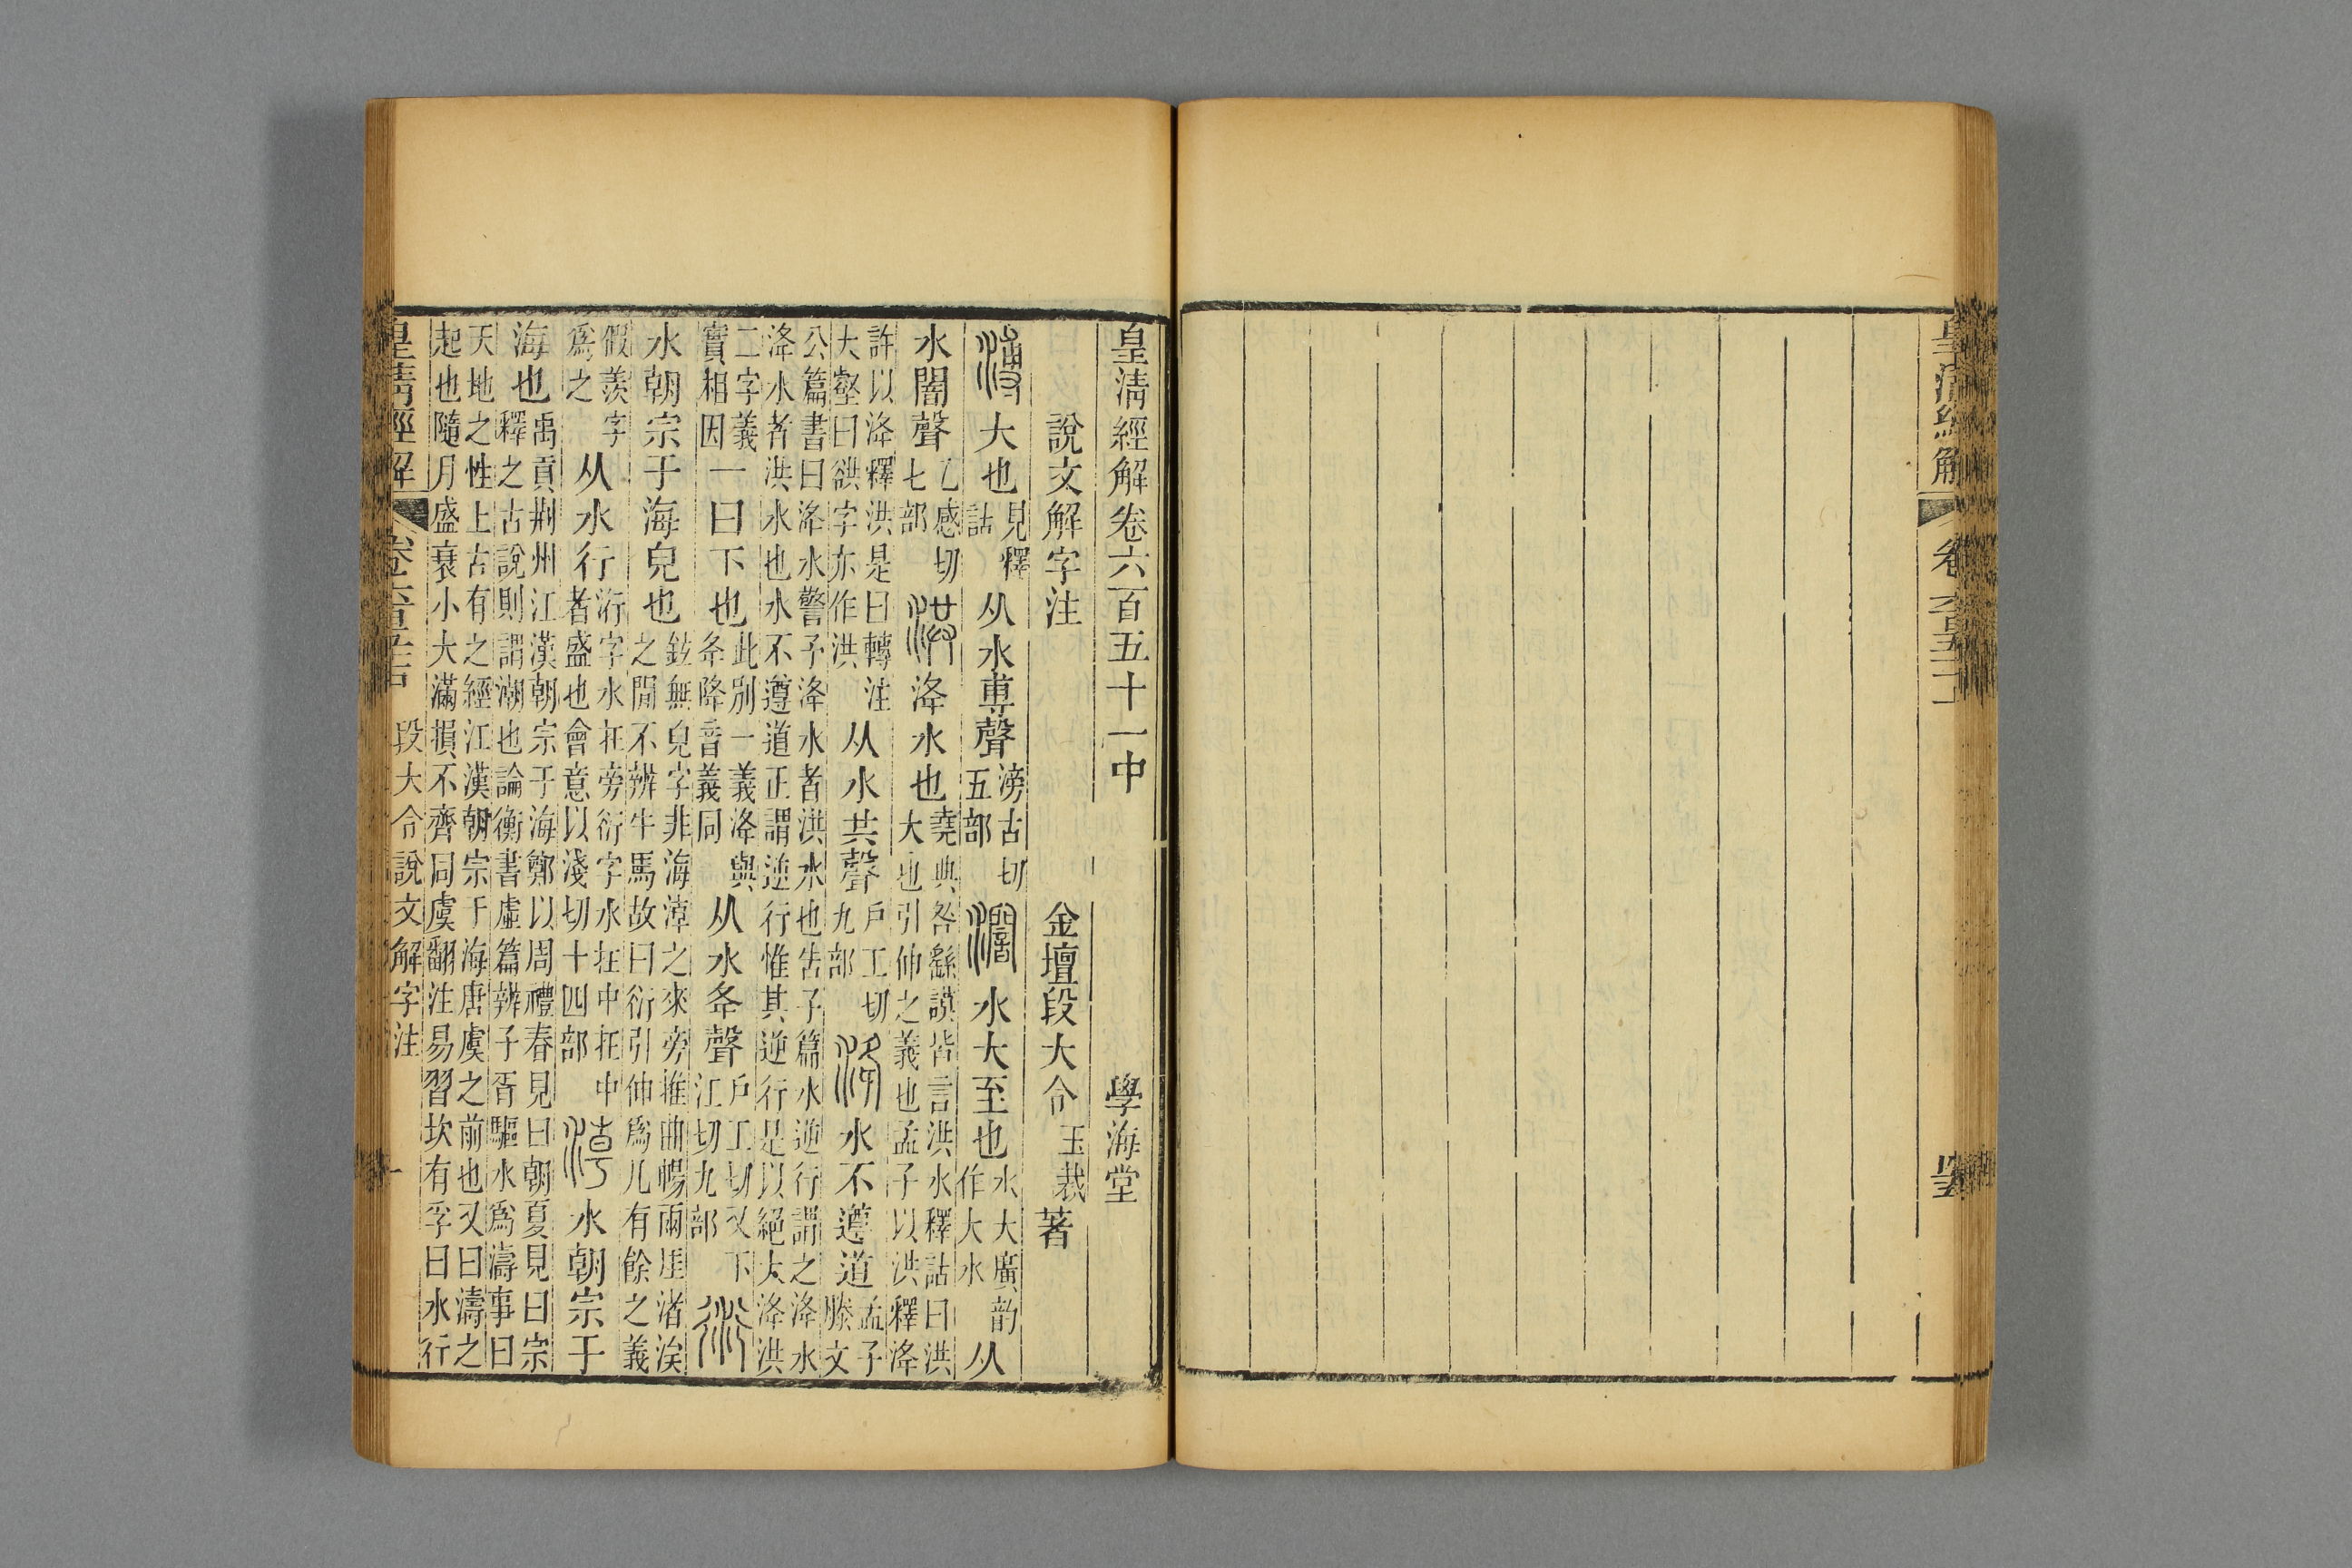 皇清經解 卷
皇清經解卷六百五十一中 學海堂
說文解字注 金壇段大令玉裁著
溥 大也見釋詁从水尃聲滂古切五部 濶 水大至也水大廣韵作大水从
水闇聲乙感切七部 洪 洚水也堯典咎繇謨皆言洪水釋詁曰洪大也引伸之義也孟子以洪釋洚
許以洚釋洪是曰轉注大壑曰谼字亦作洪从水共聲戶工切九部 洚 水不遵道孟子滕文
公篇書曰洚水警予洚水者洪水也告子篇水逆行謂之洚水洚水者洪水也水不遵道正謂逆行惟其逆行是以絕大洚洪
二字義實相因一曰下也此別一義洚與夅降音義同从水夅聲戶工切又下江切九部 衍
水朝宗于海皃也鉉無皃字非海淖之來旁推曲暢兩厓渚涘之閒不辨牛馬故曰衍引伸爲凡有餘之義
假羨字爲之从水行洐字水在旁衍字水在中在中者盛也會意以淺切十四部 淖 水朝宗于
海也禹貢荆州江漢朝宗于海鄭以周禮春見曰朝夏見曰宗釋之古說則謂潮也論衡書虛篇辨子胥驅水爲濤事曰
天地之性上古有之經江漢朝宗于海唐虞之前也又曰濤之起也隨月盛衰小大滿損不齊同虞翻注易習坎有孚曰水行
皇清經解 卷六百五十一中 段大令說文解字注 一